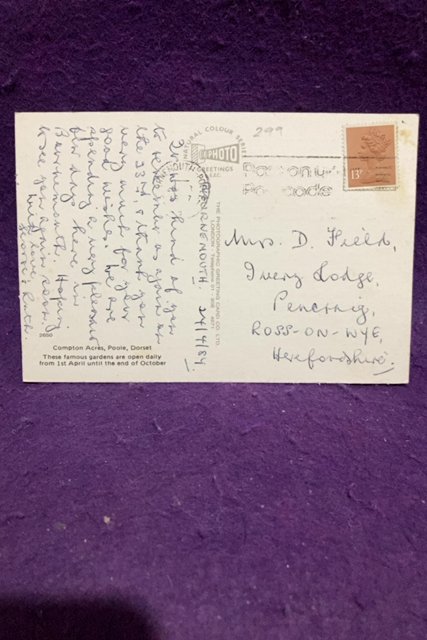 299
NATURAL COLOUR SERIES
PHOTO
GREETINGS
13P
BOURNEMOUTH. 24/4/84
It was kind of you
to ring us again on
the 23rd, & thank you
very much for your
good wishes. We are
spending a very pleasant
day here in
Bournemouth. Hoping
to see you again soon,
With love,
Ruth.
THE PHOTOGRAPHIC GREETING CARD CO. LTD
LONDON
Mrs. D. Field,
Ivery Lodge,
Pencraig,
ROSS-ON-WYE,
Herefordshire.
2850
Compton Acres, Poole, Dorset
These famous gardens are open daily
from 1st April until the end of October